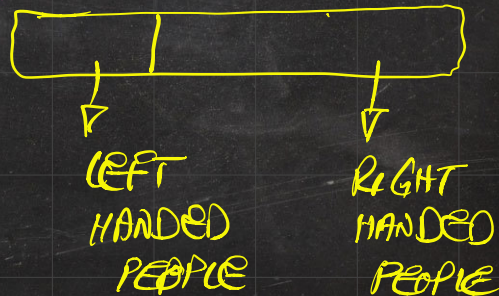 LEFT
HANDED
PEOPLE
RIGHT
HANDED
PEOPLE